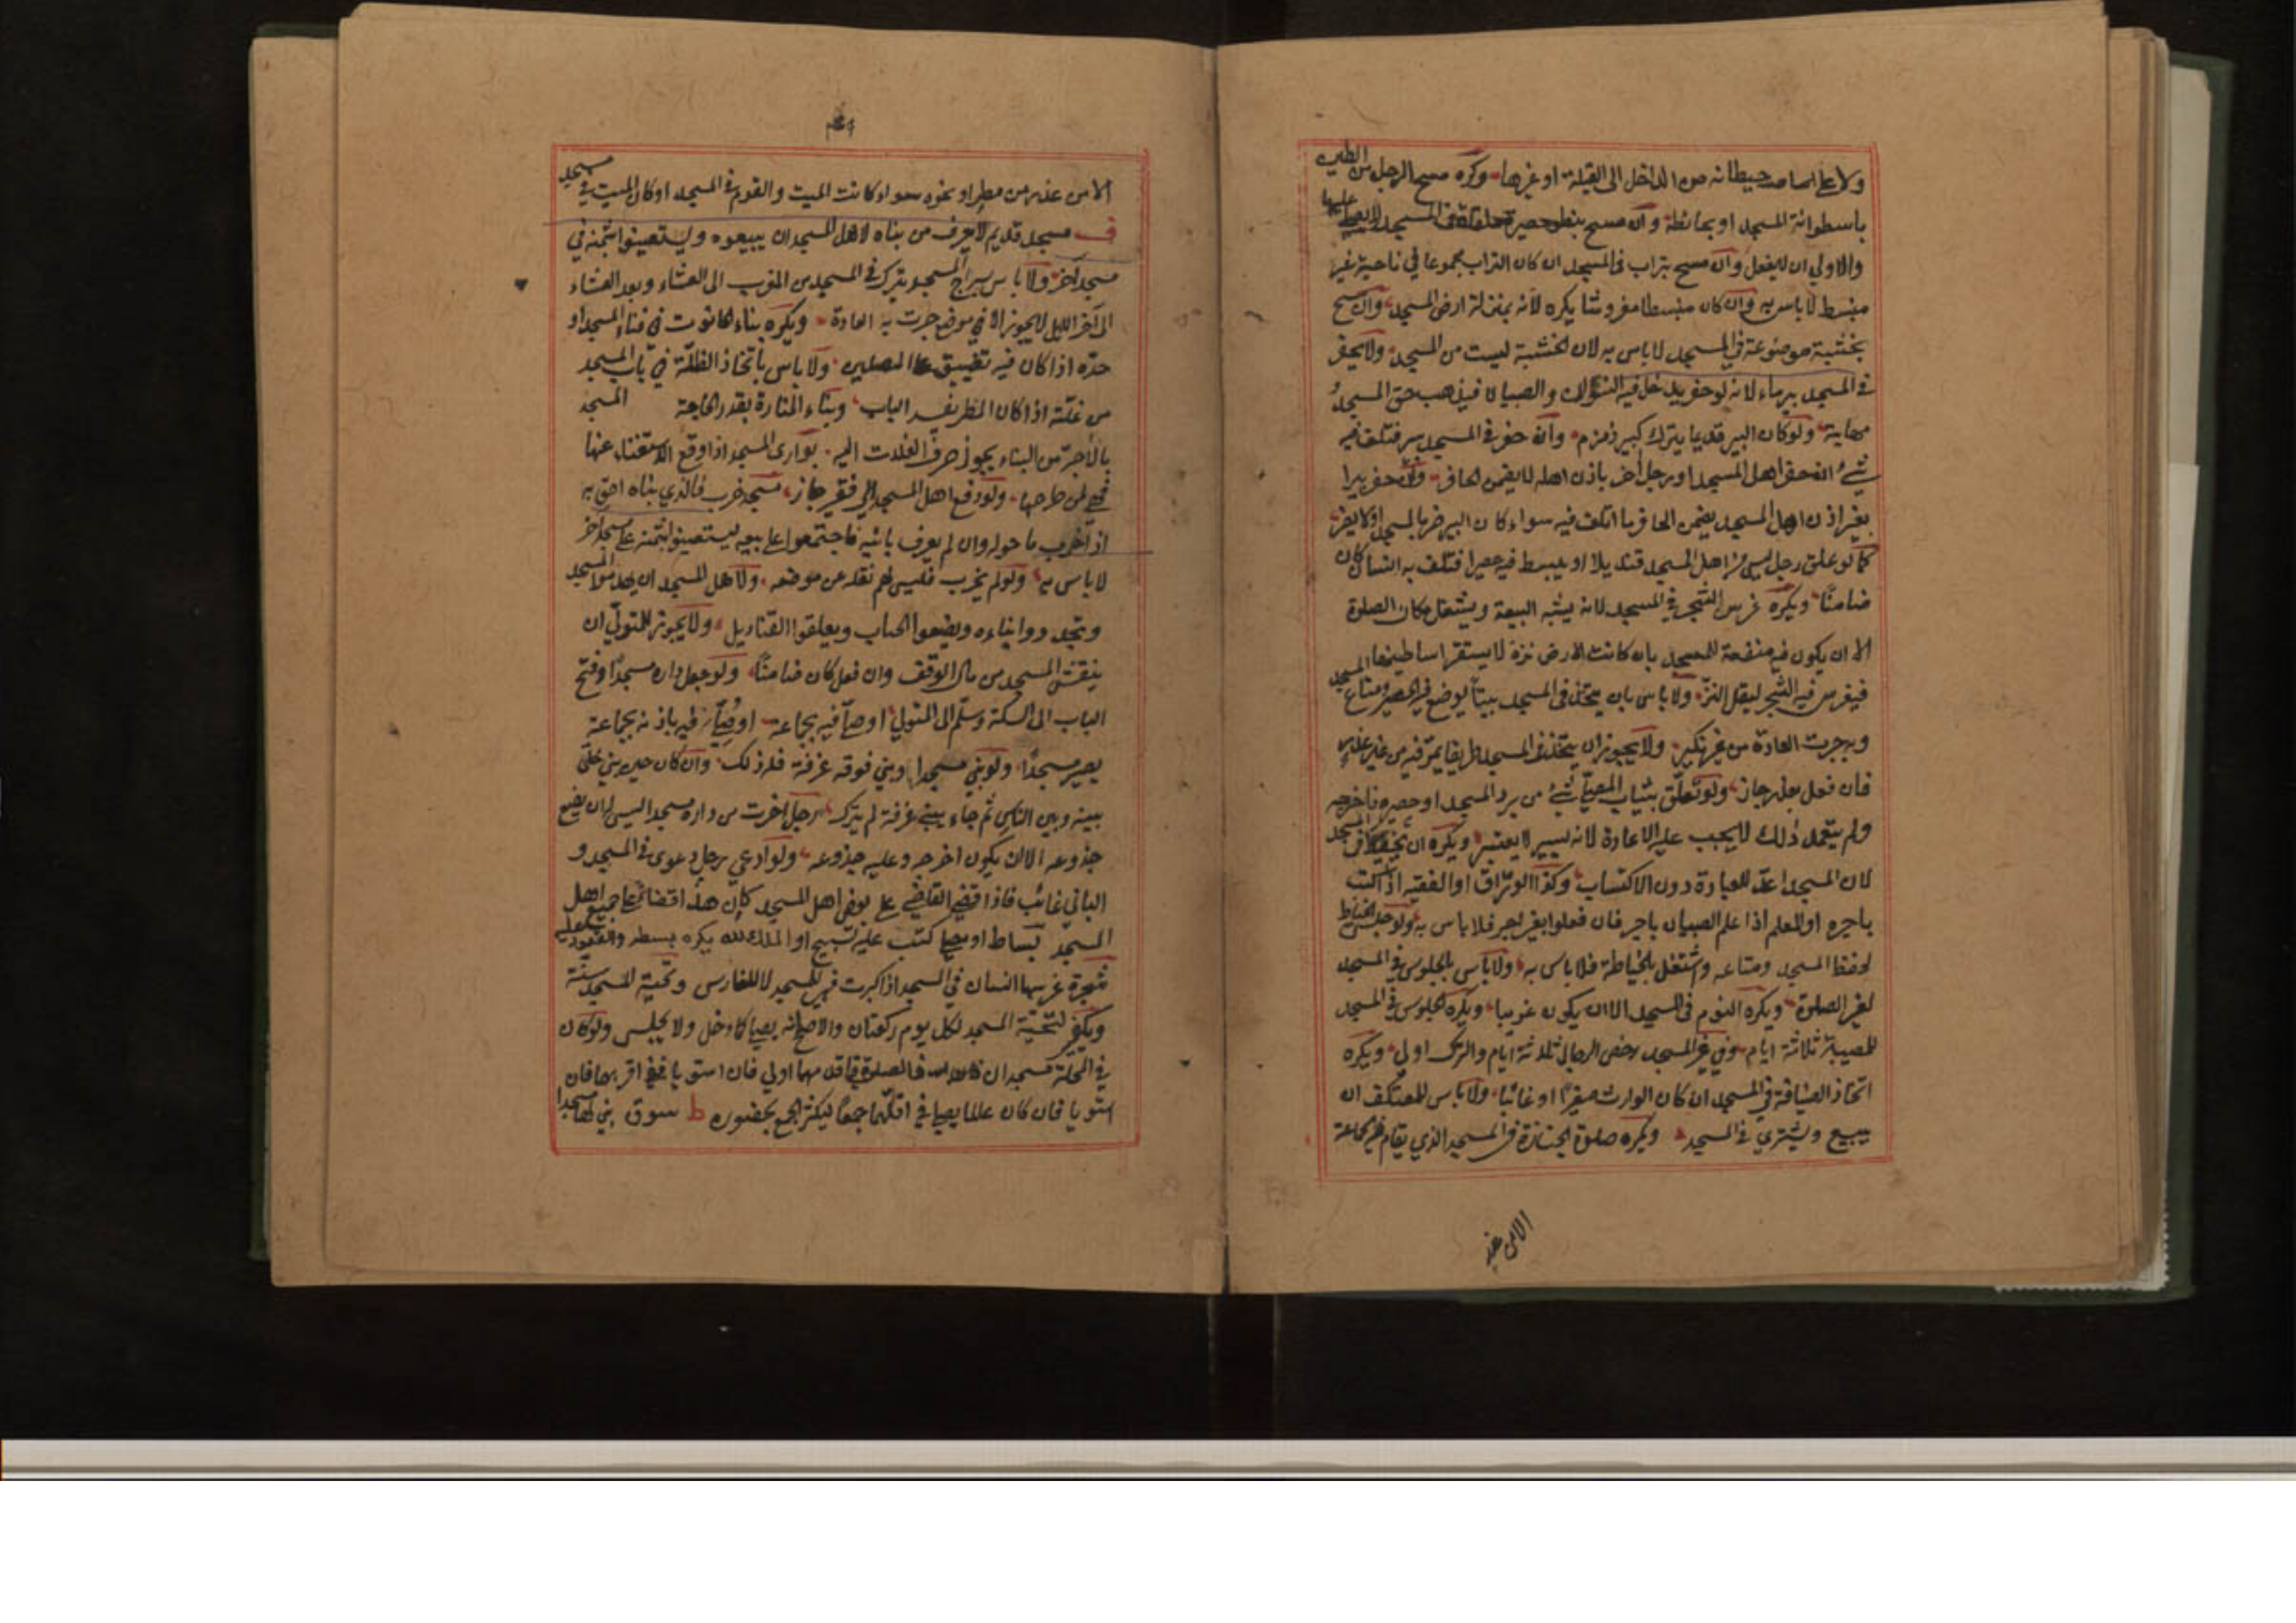 ولا على اساس حيطانه من الداخل الى القبلة او غيرها وكره مسح الرجل من الطين
باسطوانة المسجد او بحائطه وان مسح بقطعة حصير ملقاة فى المسجد لا يصلى عليها
والاولى ان لا يفعل وان مسح بتراب فى المسجد ان كان التراب مجموعا في ناحية غير
منبسط لا باس به وان كان منبسطا مفروشا يكره لانه بمنزلة ارض المسجد وان مسح
بخشبة موضوعة في المسجد لا باس به لان الخشبة ليست من المسجد ولا يحفر
في المسجد بير ماء لانه لو حفر يدخل فيه النسوان والصبيان فيذهب حق المسجد
مهابته ولو كان البير قديما يترك كبير زمزم وان حفر في المسجد بير فتلف فيه
شئ ان حفر اهل المسجد او رجل آخر باذن اهله لا يضمن الحافر وان حفر بيرا
بغير اذن اهل المسجد يضمن الحافر ما اتلف فيه سواء كان البير ضر بالمسجد او لا يضر
كما لو علق رجل ليس من اهل المسجد قنديلا او يبسط فيه حصيرا فتلف به انسان كان
ضامنا ويكره غرس الشجر في المسجد لانه يشبه البيعة ويشغل مكان الصلوة
الا ان يكون فيه منفعة للمسجد بان كانت الارض نزة لا يستقر اساطينها
فيغرس فيه الشجر ليقل النز ولا باس بان يتخذ فى المسجد بيتا يوضع فيه الحصير ومتاع المسجد
وبه جرت العادة من غير نكير ولا يجوز ان يتخذ فى المسجد طريقا يمر فيه من غير عذر
فان فعل بعذر جاز ولو تعلق بثياب المصلى شئ من برد المسجد او حصيره فاخرجه
ولم يتعمد ذلك لا يجب عليه الاعادة لانه يسير لا يعتبر ويكره ان يخيط فى المسجد
لان المسجد اعد للعبادة دون الاكتساب وكذا الوراق او الفقيه اذا كتب
باجرة او المعلم اذا علم الصبيان باجر فان فعلوا بغير اجر فلا باس به ولو جلس الخياط
لحفظ المسجد ومتاعه واشتغل بالخياطة فلا باس به ولا باس بالجلوس في المسجد
لغير الصلوة ويكره النوم فى المسجد الا ان يكون غريبا ويكره الجلوس في المسجد
للمصيبة ثلاثة ايام وفي غير المسجد رخص الرجال ثلاثة ايام والترك اولى ويكره
اتخاذ الضيافة في المسجد ان كان الوارث صغيرا او غائبا ولا باس للمعتكف ان
يبيع ويشتري في المسجد ويكره صلوة الجنازة فى المسجد الذي يقام فيه الجماعة
الا من عذر
الا من عذر من مطر او نحوه سواء كانت الميت والقوم في المسجد او كان الميت في مسجد
ف مسجد قديم لا يعرف من بناه لاهل المسجد ان يبيعوه ويستعينوا بثمنه في
مسجد آخر ولا باس بسراج المسجد يترك في المسجد من المغرب الى العشاء وبعد العشاء
الى آخر الليل لا يجوز الا في موضع جرت به العادة ويكره بناء الحانوت في فناء المسجد او
حده اذا كان فيه تضييق على المصلين ولا باس باتخاذ الظلة في باب المسجد
من غلته اذا كان المطر يفسد الباب وبناء المنارة بقدر الحاجة المسجد
بالآجر من البناء يجوز صرف الغلات اليه بوارى المسجد اذا وقع الاستغناء عنها
فهي لمن طرحها ولو دفع اهل المسجد الى فقير جاز مسجد خرب فالذي بناه احق به
اذا خرب ما حوله وان لم يعرف بانيه فاجتمعوا على بيعه ليستعينوا بثمنه على مسجد آخر
لا باس به ولو لم يخرب فليس لهم نقله عن موضعه ولاهل المسجد ان يهدموا المسجد
ويجددوا بناءه ويضعوا الحباب ويعلقوا القناديل ولا يجوز للمتولي ان
ينقش المسجد من مال الوقف وان فعل كان ضامنا ولو جعل داره مسجدا وفتح
الباب الى السكة وسلم الى المتولي او صلى فيه بجماعة او صلى فيه باذنه بجماعة
يصير مسجدا ولو بني مسجدا وبني فوقه غرفة فله ذلك وان كان حين بني خلى
بينه وبين الناس ثم جاء يبني غرفة لم يترك رجل اخرج من داره مسجدا ليس له ان يضع
جذوعه الا ان يكون اخرجه وعليه جذوعه ولو ادعى رجل دعوى في المسجد و
الباني غائب فاذا قضى القاضي على بعض اهل المسجد كان هذا قضاء على جميع اهل
المسجد بساط او مصلى كتب عليه تسبيح او الملك لله يكره بسطه والقعود عليه
شجرة غرسها انسان في المسجد اذا كبرت فهي للمسجد لا للغارس وتحية المسجد سنة
ويكفي لتحية المسجد لكل يوم ركعتان والاصح انه يصلي كلما دخل ولا يجلس ولو كان
في المحلة مسجدان فالصلوة في اقدمهما اولى فان استويا ففي اقربهما فان
استويا فان كان عالما يصلي في اقلهما جمعا ليكثر الجمع بحضوره ط سوق بني لها مسجدا